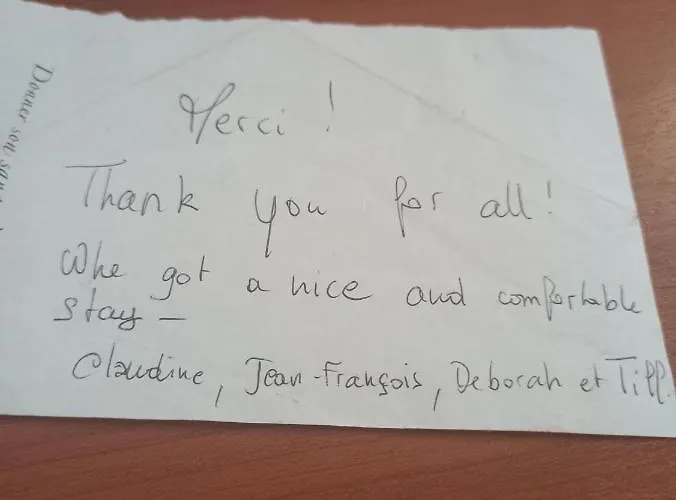 Merci !
Thank you for all!
Whe got a nice and comfortable
stay –
Claudine, Jean-François, Deborah et Till.
Donner son